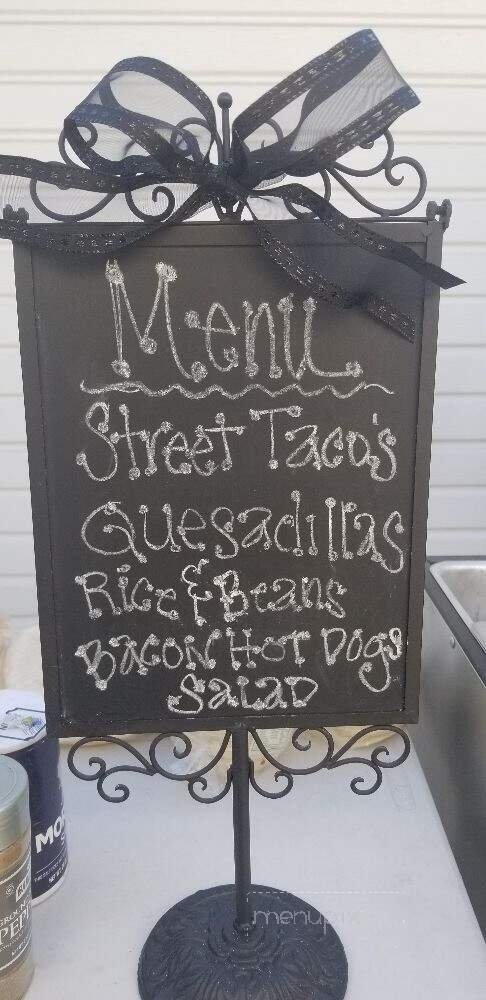 Menu
Street Taco's
Quesadillas
Rice & Beans
Bacon Hot Dogs
Salad
MO
GROUN
PEPP
menup